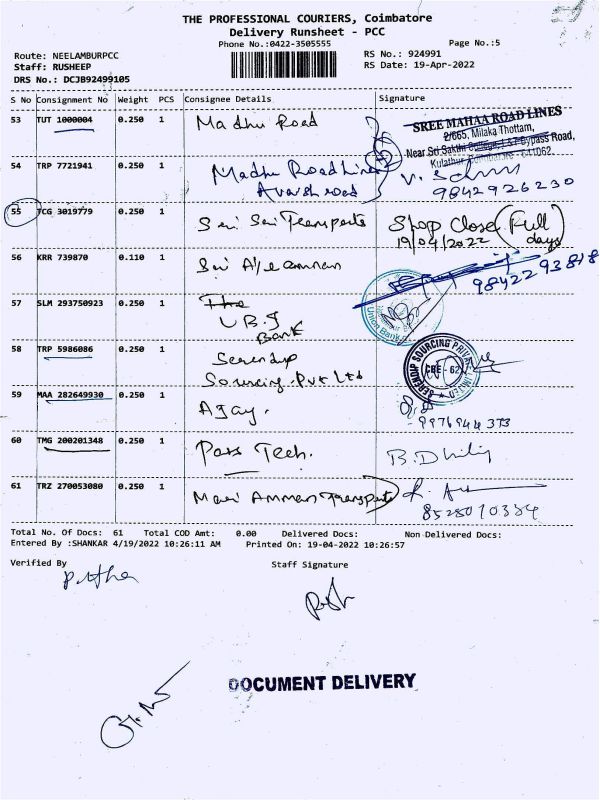 THE PROFESSIONAL COURIERS, Coimbatore
Delivery Runsheet - PCC
Phone No.:0422-3505555
Page No.:5
Route: NEELAMBURPCC
RS No.: 924991
Staff: RUSHEEP
RS Date: 19-Apr-2022
DRS No.: DCJB92499105
S No Consignment No Weight PCS Consignee Details Signature
53 TUT 1000004 0.250 1 Madhu Road
SREE MAHAA ROAD LINES
2/665, Milaka Thottam,
Near Sri Sakthi College, L&T Bypass Road,
54 TRP 7721941 0.250 1 Madhu Road Lines
9842926230
55 TCG 3019779 0.250 1 Sri Sai Transports Shop Close (Full days)
19/04/2022
56 KRR 739870 0.110 1 Sri
9842293818
57 SLM 293750923 0.250 1 The
UBI
Bank
Union Bank
58 TRP 5986086 0.250 1 Serendip
Sourcing Pvt Ltd
SERENDIP SOURCING PRIVATE LIMITED
CBE - 62
59 MAA 282649930 0.250 1 Ajay.
9976944373
60 TMG 200201348 0.250 1 Pass Tech.
61 TRZ 270053080 0.250 1 Mari Amman Transports
8528010384
Total No. Of Docs: 61 Total COD Amt: 0.00 Delivered Docs: Non Delivered Docs:
Entered By :SHANKAR 4/19/2022 10:26:11 AM Printed On: 19-04-2022 10:26:57
Verified By
Staff Signature
DOCUMENT DELIVERY